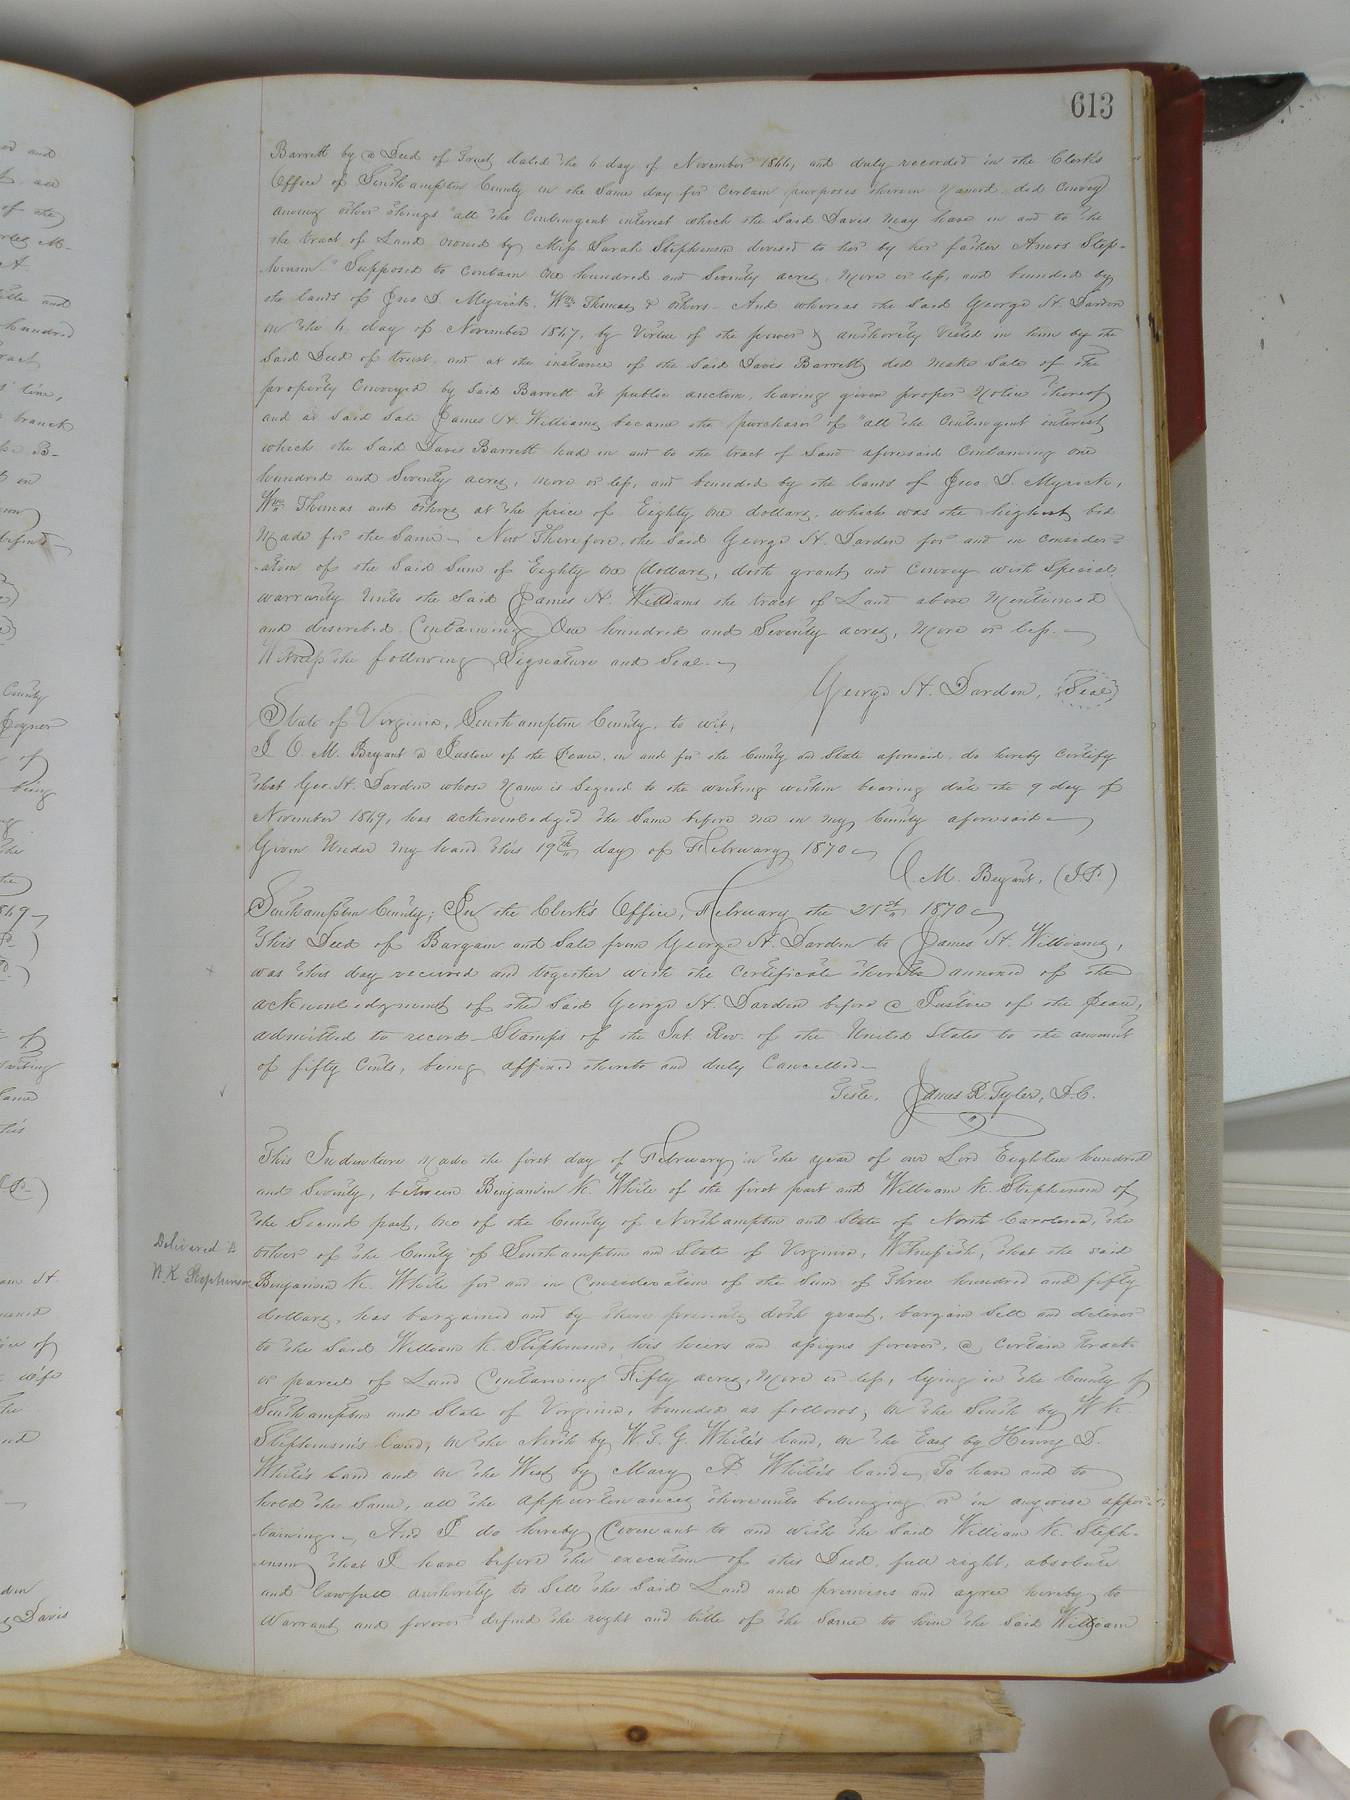 613
Barrett by a Deed of Trust dated the 6 day of November 1866, and duly recorded in the Clerk's
Office of Southampton County on the same day for certain purposes therein named did convey
among other things "all the contingent interest which the said Davis may have in and to the
the tract of Land owned by Miss Sarah Stephenson devised to her by her father Amos Steph-
henson." Supposed to contain one hundred and Seventy acres, more or less, and bounded by
the lands of Jno D. Myrick, Wm Thomas & others. And whereas the said George H. Darden
on the day of November 1867, by Virtue of the power & authority Vested in him by the
Said Deed of trust and at the instance of the Said Davis Barrett, did make Sale of the
property Conveyed by Said Barrett at public auction, having given proper Notice thereof
and at Said Sale James H. Williams became the purchaser of "all the Contingent interest
which the Said Davis Barrett had in and to the tract of Land aforesaid Containing one
hundred and Seventy acres, more or less, and bounded by the lands of Jno. D. Myrick,
Wm Thomas and others at the price of Eighty one dollars, which was the highest bid
Made for the Same. Now Therefore, the Said George H. Darden for and in consider-
-ation of the Said Sum of Eighty one dollars, doth grant and Convey with Special
warranty Unto the Said James H. Williams the tract of Land above Mentioned
and described Containing One hundred and Seventy acres, More or less.
Witness the following Signature and Seal.
George H. Darden, (Seal)
State of Virginia, Southampton County, to wit;
I O. M. Bryant a Justice of the Peace, in and for the County and State aforesaid, do hereby certify
that Geo. H. Darden whose Name is Signed to the writing within bearing date the 9 day of
November 1869, has acknowledged the Same before me in my County aforesaid
Given Under My hand this 19th day of February 1870
O. M. Bryant, (J.P.)
Southampton County; In the Clerk's Office, February the 21st 1870
This Deed of Bargain and Sale from George H. Darden to James H. Williams,
was this day received and together with the Certificate thereto annexed of the
acknowledgment of the Said George H. Darden before a Justice of the Peace,
admitted to record. Stamps of the Int. Rev. of the United States to the amount
of fifty Cents, being affixed thereto and duly Cancelled.
Teste, James R. Tyler, D.C.
This Indenture Made the first day of February in the year of our Lord Eighteen hundred
and Seventy, between Benjamin K. White of the first part and William K. Stephenson of
the Second part, one of the County of Northampton and State of North Carolina, the
other of the County of Southampton and State of Virginia, Witnesseth, that the said
Delivered to
W. K. Stephenson
Benjamin K. White for and in Consideration of the Sum of Three hundred and fifty
dollars, has bargained and by these presents doth grant, bargain Sell and deliver
to the Said William K. Stephenson, his heirs and assigns forever, a Certain tract
or parcel of Land Containing Fifty acres, More or less, lying in the County of
Southampton and State of Virginia, bounded as follows, On the South by W. K.
Stephenson's land, on the North by W. T. G. White's land, on the East by Henry D.
White's land and on the West by Mary A. White's land. To have and to
hold the Same, all the appurtenances thereunto belonging or in anywise apper-
taining. And I do hereby Covenant to and with the Said William K. Steph-
enson that I have before the execution of this Deed, full right, absolute
and lawfull authority to Sell the Said Land and premises and agree hereby to
Warrant and forever defend the right and title of the Same to him the Said William